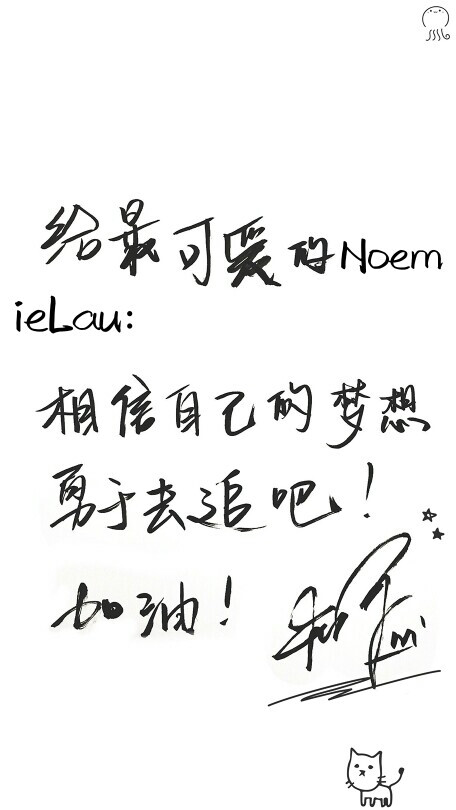 给最可爱的Noem
ieLau:
相信自己的梦想
勇于去追吧！
加油！